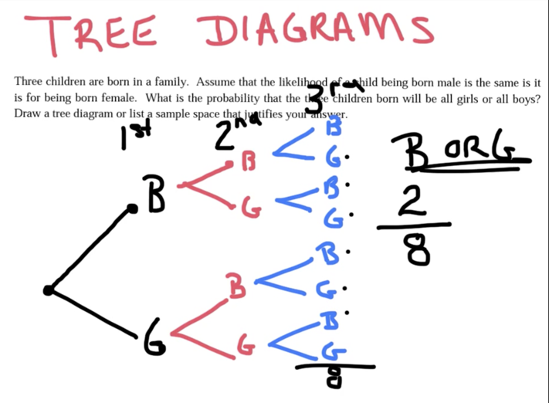 TREE DIAGRAMS
Three children are born in a family. Assume that the likelihood of a child being born male is the same is it
is for being born female. What is the probability that the three children born will be all girls or all boys?
Draw a tree diagram or list a sample space that justifies your answer.
1st 2nd 3rd
B
B G
B B OR G
G B 2
G 8
B
B G
G B
G G
8